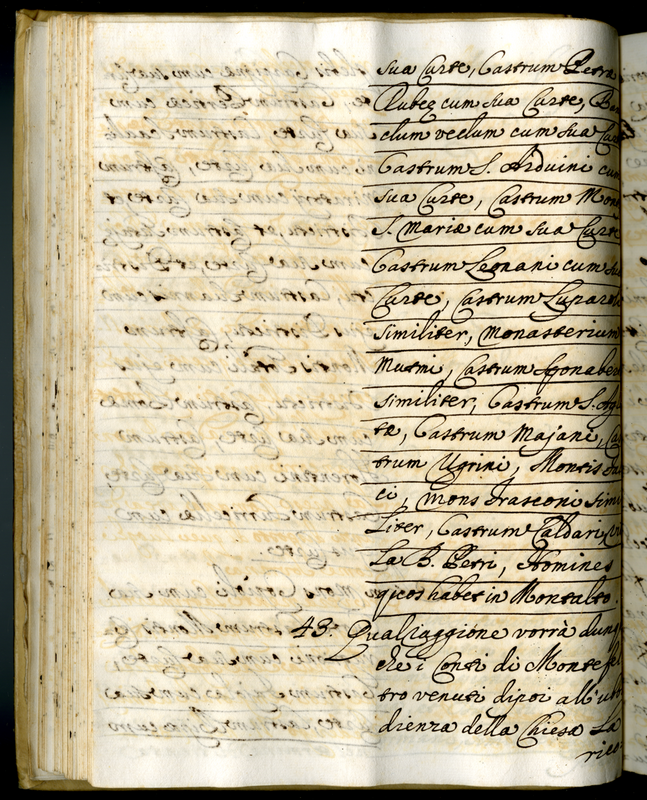 sua Curte, Castrum Petra
Rubeg cum sua Curte,
clum veclum cum sua Cur
Castrum S. Arduini cum
sua Curte, Castrum Mon
S. Mariæ cum sua Curte
Castrum Legnani cum su
Curte, Castrum Luparol
similiter, Monasterium
Mutni, Castrum Sgonabe
similiter, Castrum S. Ag
tæ, Castrum Majani, Ca
trum Ugrini, Montis
ci, Mons simi
liter, Castrum Caldari,
La B. Petri, Homines
qicos habet in Montalto.
43. Qual raggione vorrà dunq
che i Conti di Montefel
tro venuti dipoi all'ub
dienza della Chiesa La
rico